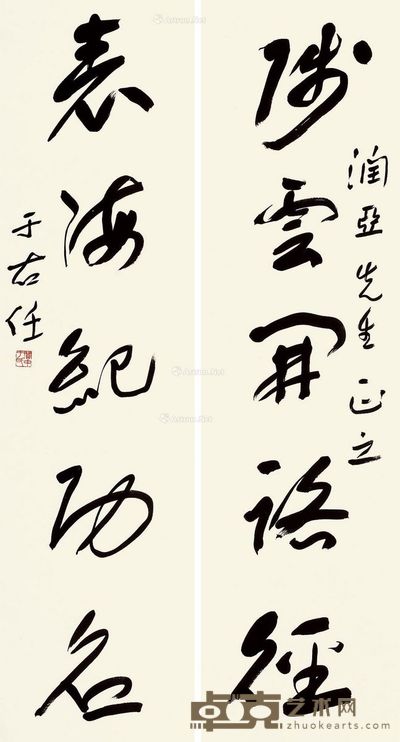 陟雲開路徑
潤亞先生正之
表海紀功名
于右任
卓克艺术网
zhuokearts.com